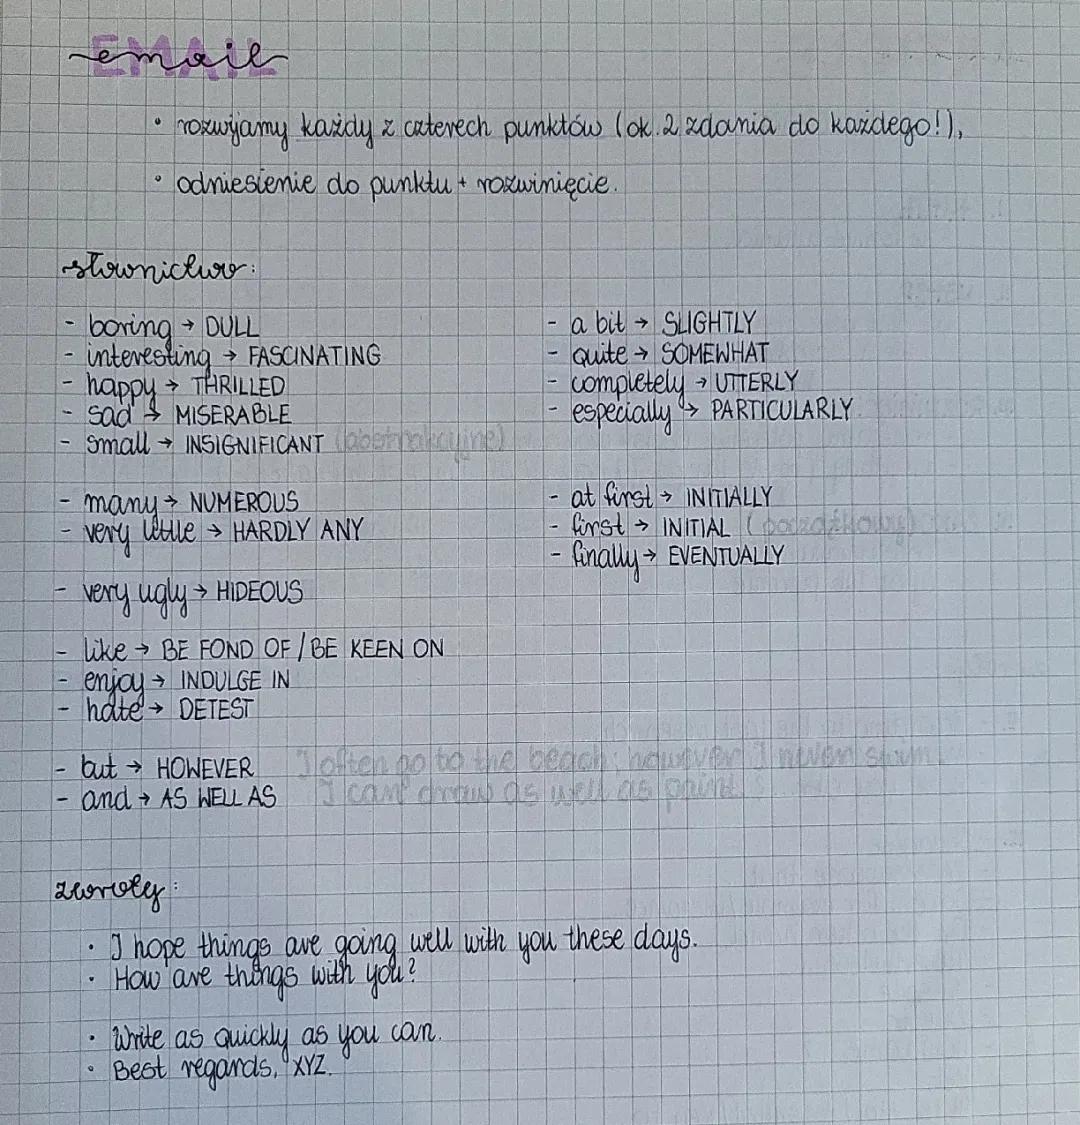 EMAIL
email
• rozwijamy każdy z czterech punktów (ok. 2 zdania do każdego!),
• odniesienie do punktu + rozwinięcie.
słownictwo:
- boring → DULL
- interesting → FASCINATING
- happy → THRILLED
- sad → MISERABLE
- small → INSIGNIFICANT (abstrakcyjne)
- a bit → SLIGHTLY
- quite → SOMEWHAT
- completely → UTTERLY
- especially → PARTICULARLY
- many → NUMEROUS
- very little → HARDLY ANY
- at first → INITIALLY
- first → INITIAL (początkowy)
- finally → EVENTUALLY
- very ugly → HIDEOUS
- like → BE FOND OF / BE KEEN ON
- enjoy → INDULGE IN
- hate → DETEST
- but → HOWEVER I often go to the beach; however I never swim.
- and → AS WELL AS I can draw as well as paint.
zwroty:
• I hope things are going well with you these days.
• How are things with you?
• Write as quickly as you can.
• Best regards, XYZ.